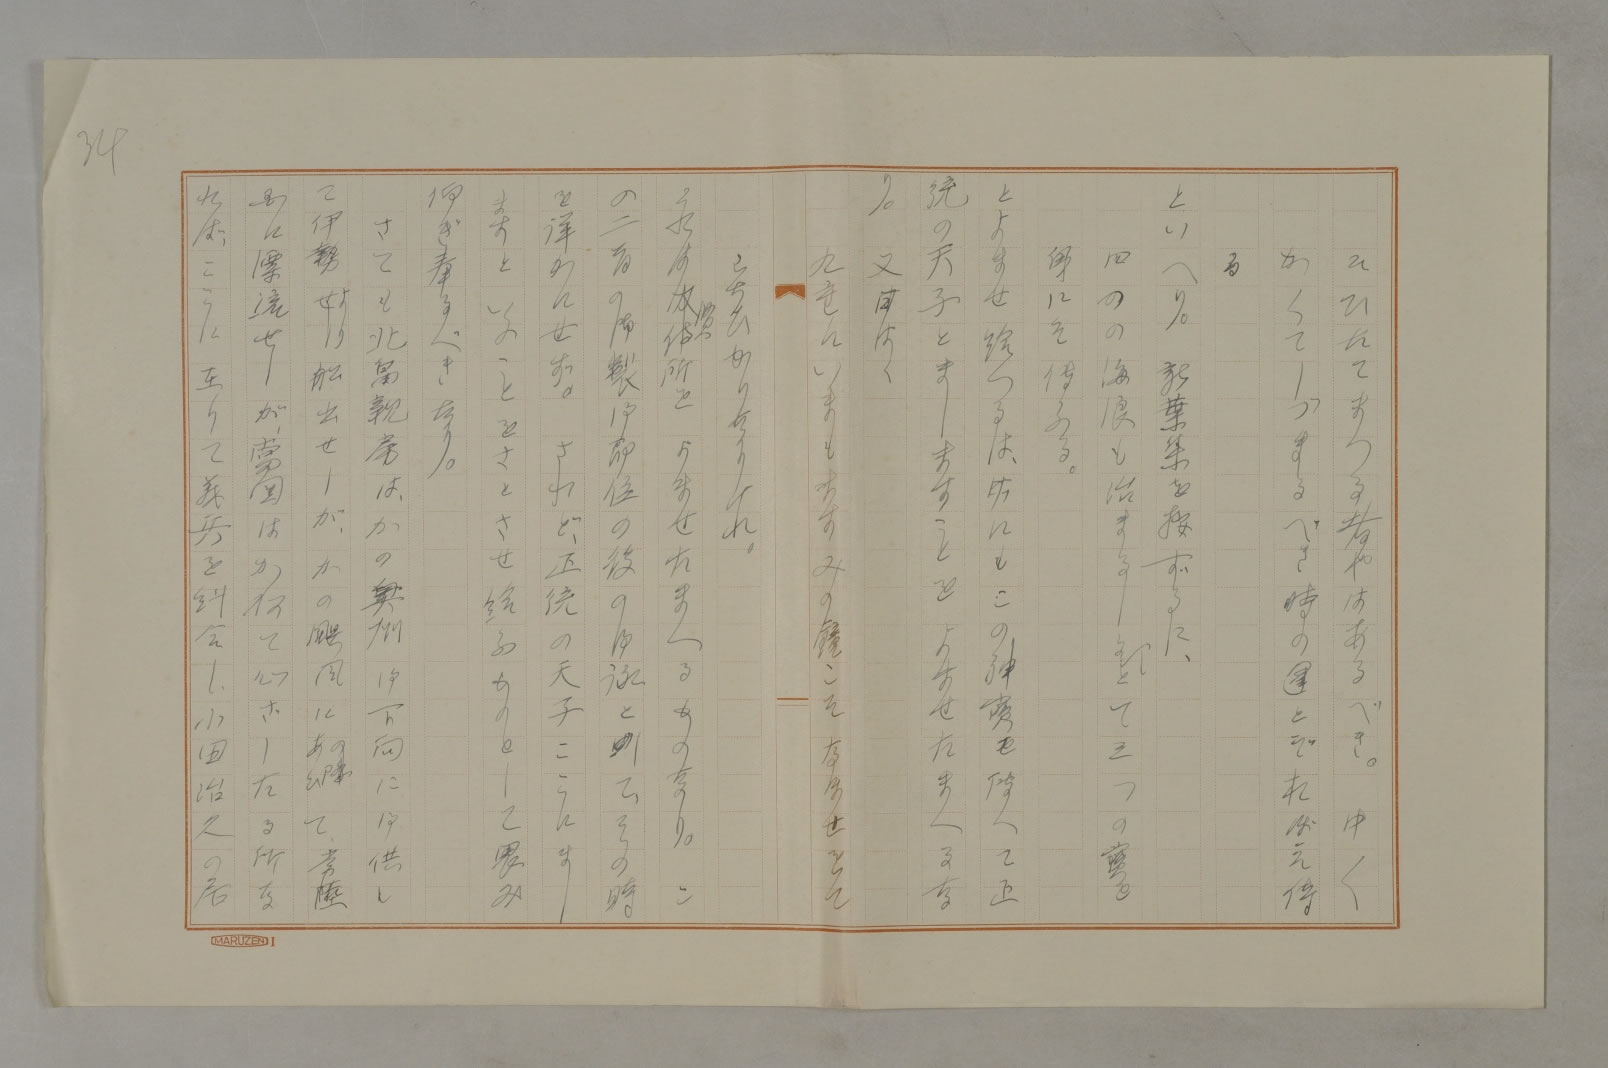 34
ひひたてまつる者やはあるべき。中〻
かくてしづまるべき時の運とぞおぼえ侍
る
といへり。新葉集を按ずるに、
四つの海浪も治まるしるしとて三つの寶を
身にぞ伝ふる。
とよませ給へるは、此にもこの神寶を伝へて正
統の天子とましますことをよませたまへるな
り。又曰はく
九重にいまもますみの鏡こそなほ世をてらす
ひかりなりけれ。
これは内侍所をよませたまへるものなり。こ
の二首の御製御即位の後の御詠と
を詳かにせず。されど、正統の天子ここにまし
ますといふことをさとさせ給ふものとして畏み
仰ぎ奉るべきなり。
さても北畠親房は、かの奥州御下向に御供し
て伊勢より船出せしが、かの颶風にあひて、常陸
国に漂流せしが、當国はかねて心ざしたる所な
れば、ここに在りて義兵を糾合し、小田治久の居
MARUZEN I